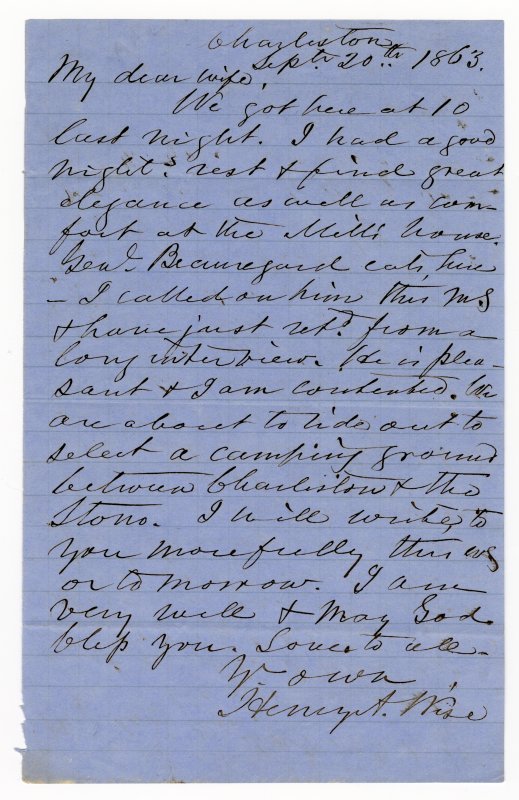 Charleston
Sept. 20th 1863.
My dear wife,
We got here at 10
last night. I had a good
night's rest & find great
elegance as well as com-
fort at the Mills house.
Genl. Beauregard eats here
- I called on him this mg
& have just retd. from a
long interview. He is plea-
sant & I am contented. We
are about to ride out to
select a camping ground
between Charleston & the
Stono. I will write to
you more fully this evg
or to morrow. I am
very well & may God
bless you. Love to all -
Yr. own
Henry A. Wise